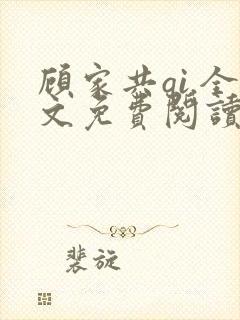 顾家共qi全
文免费阅读
裴旋